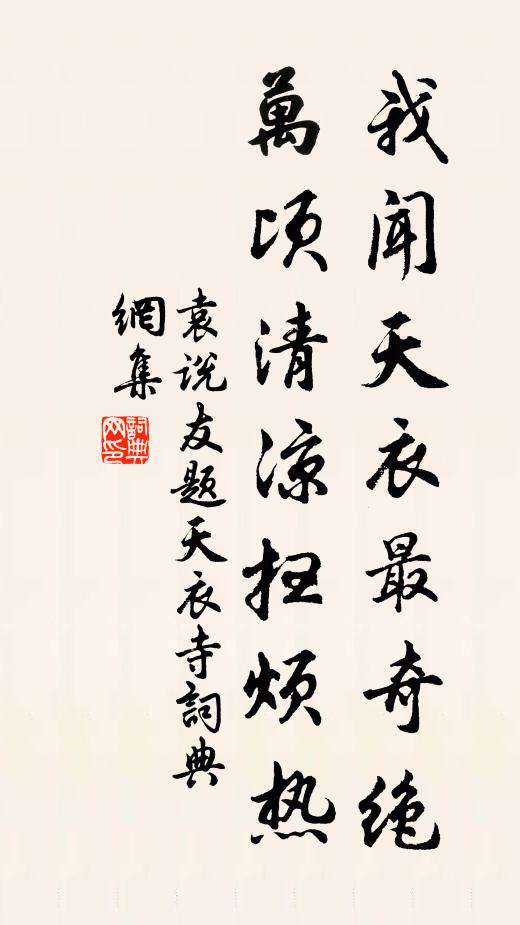 我闻天衣最奇绝
萬顷清凉扫烦热
袁说友题天衣寺詞典
網集
詞典网印